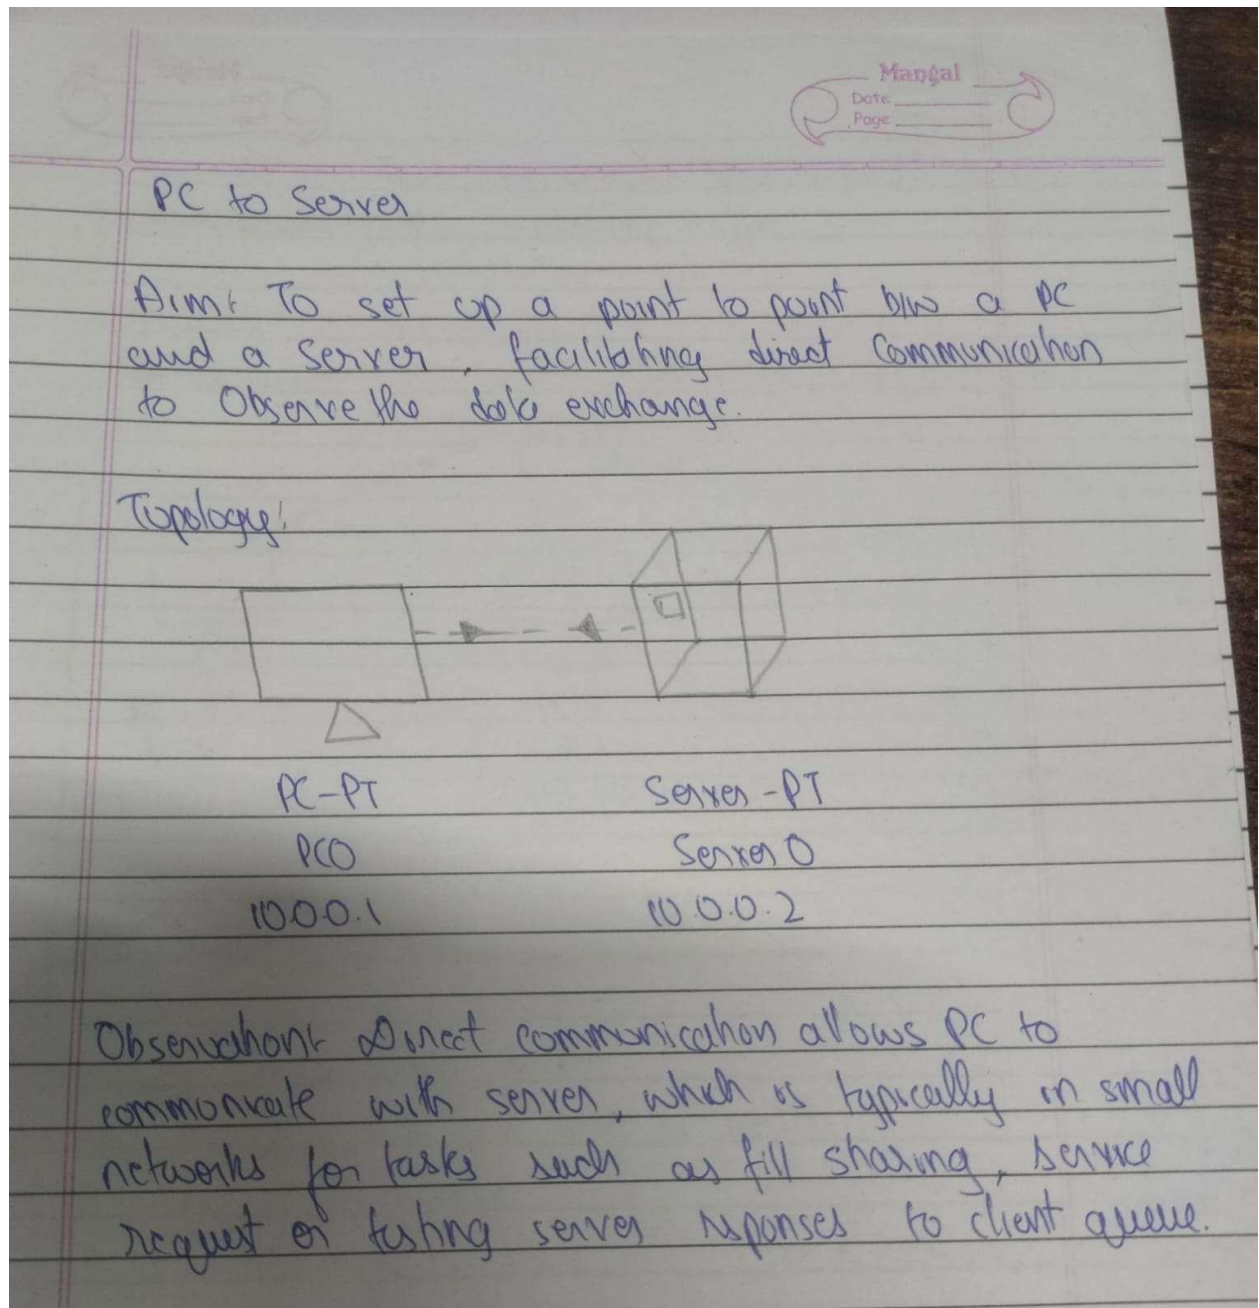 Mangal
Date
Page
PC to Server
Aim: To set up a point to point b/w a PC
and a Server, facilitating direct Communication
to Observe the data exchange.
Topology:
PC-PT Server-PT
PC0 Server 0
10.0.0.1 10.0.0.2
Observation: Direct communication allows PC to
communicate with server, which is typically in small
networks for tasks such as fill sharing, service
request or testing server responses to client queue.